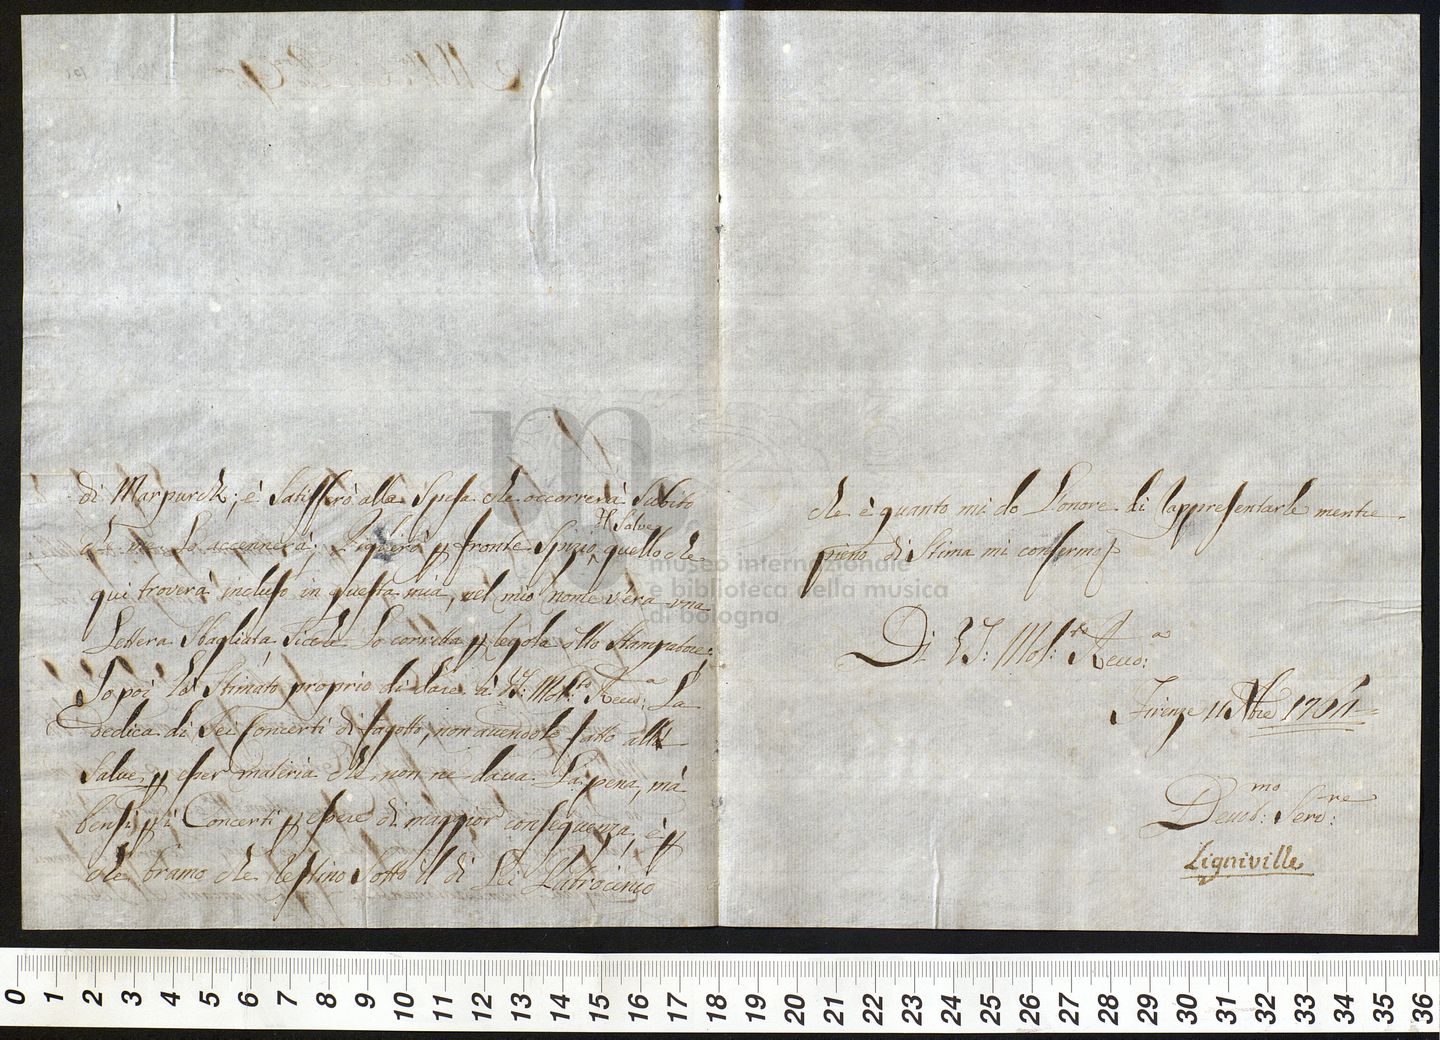 di Marpurck; è Satisferò alla Spesa che occorrerà Subito
ch' me Lo accennerà;
Il Salve
fronte Spizio, quello che
qui troverà incluso in questa mia, nel mio nome v'era una
Lettera Sbagliata, Sicche Lo corretta p regola allo Stampatore;
Io poi hò Stimato proprio di dare à V.S: Mol:to Reve: a La
Dedica di Sei Concerti di fagotto, non avendolo fatto alla
Salve, p esser materia che non ne dava La pena, mà
bensi p i Concerti p essere di maggior conseguenza, è p
che bramo che leschino Sotto il di Lei Patrocinio
che è quanto mi do L'onore di rappresentarle mentre
pieno di Stima mi confermo
Di V.S: Mol:to Reve: a
Firenze 11 Xbre 1764
Devot:mo Serv:re
Ligniville
museo internazionale
e biblioteca della musica
di bologna
0 1 2 3 4 5 6 7 8 9 10 11 12 13 14 15 16 17 18 19 20 21 22 23 24 25 26 27 28 29 30 31 32 33 34 35 36